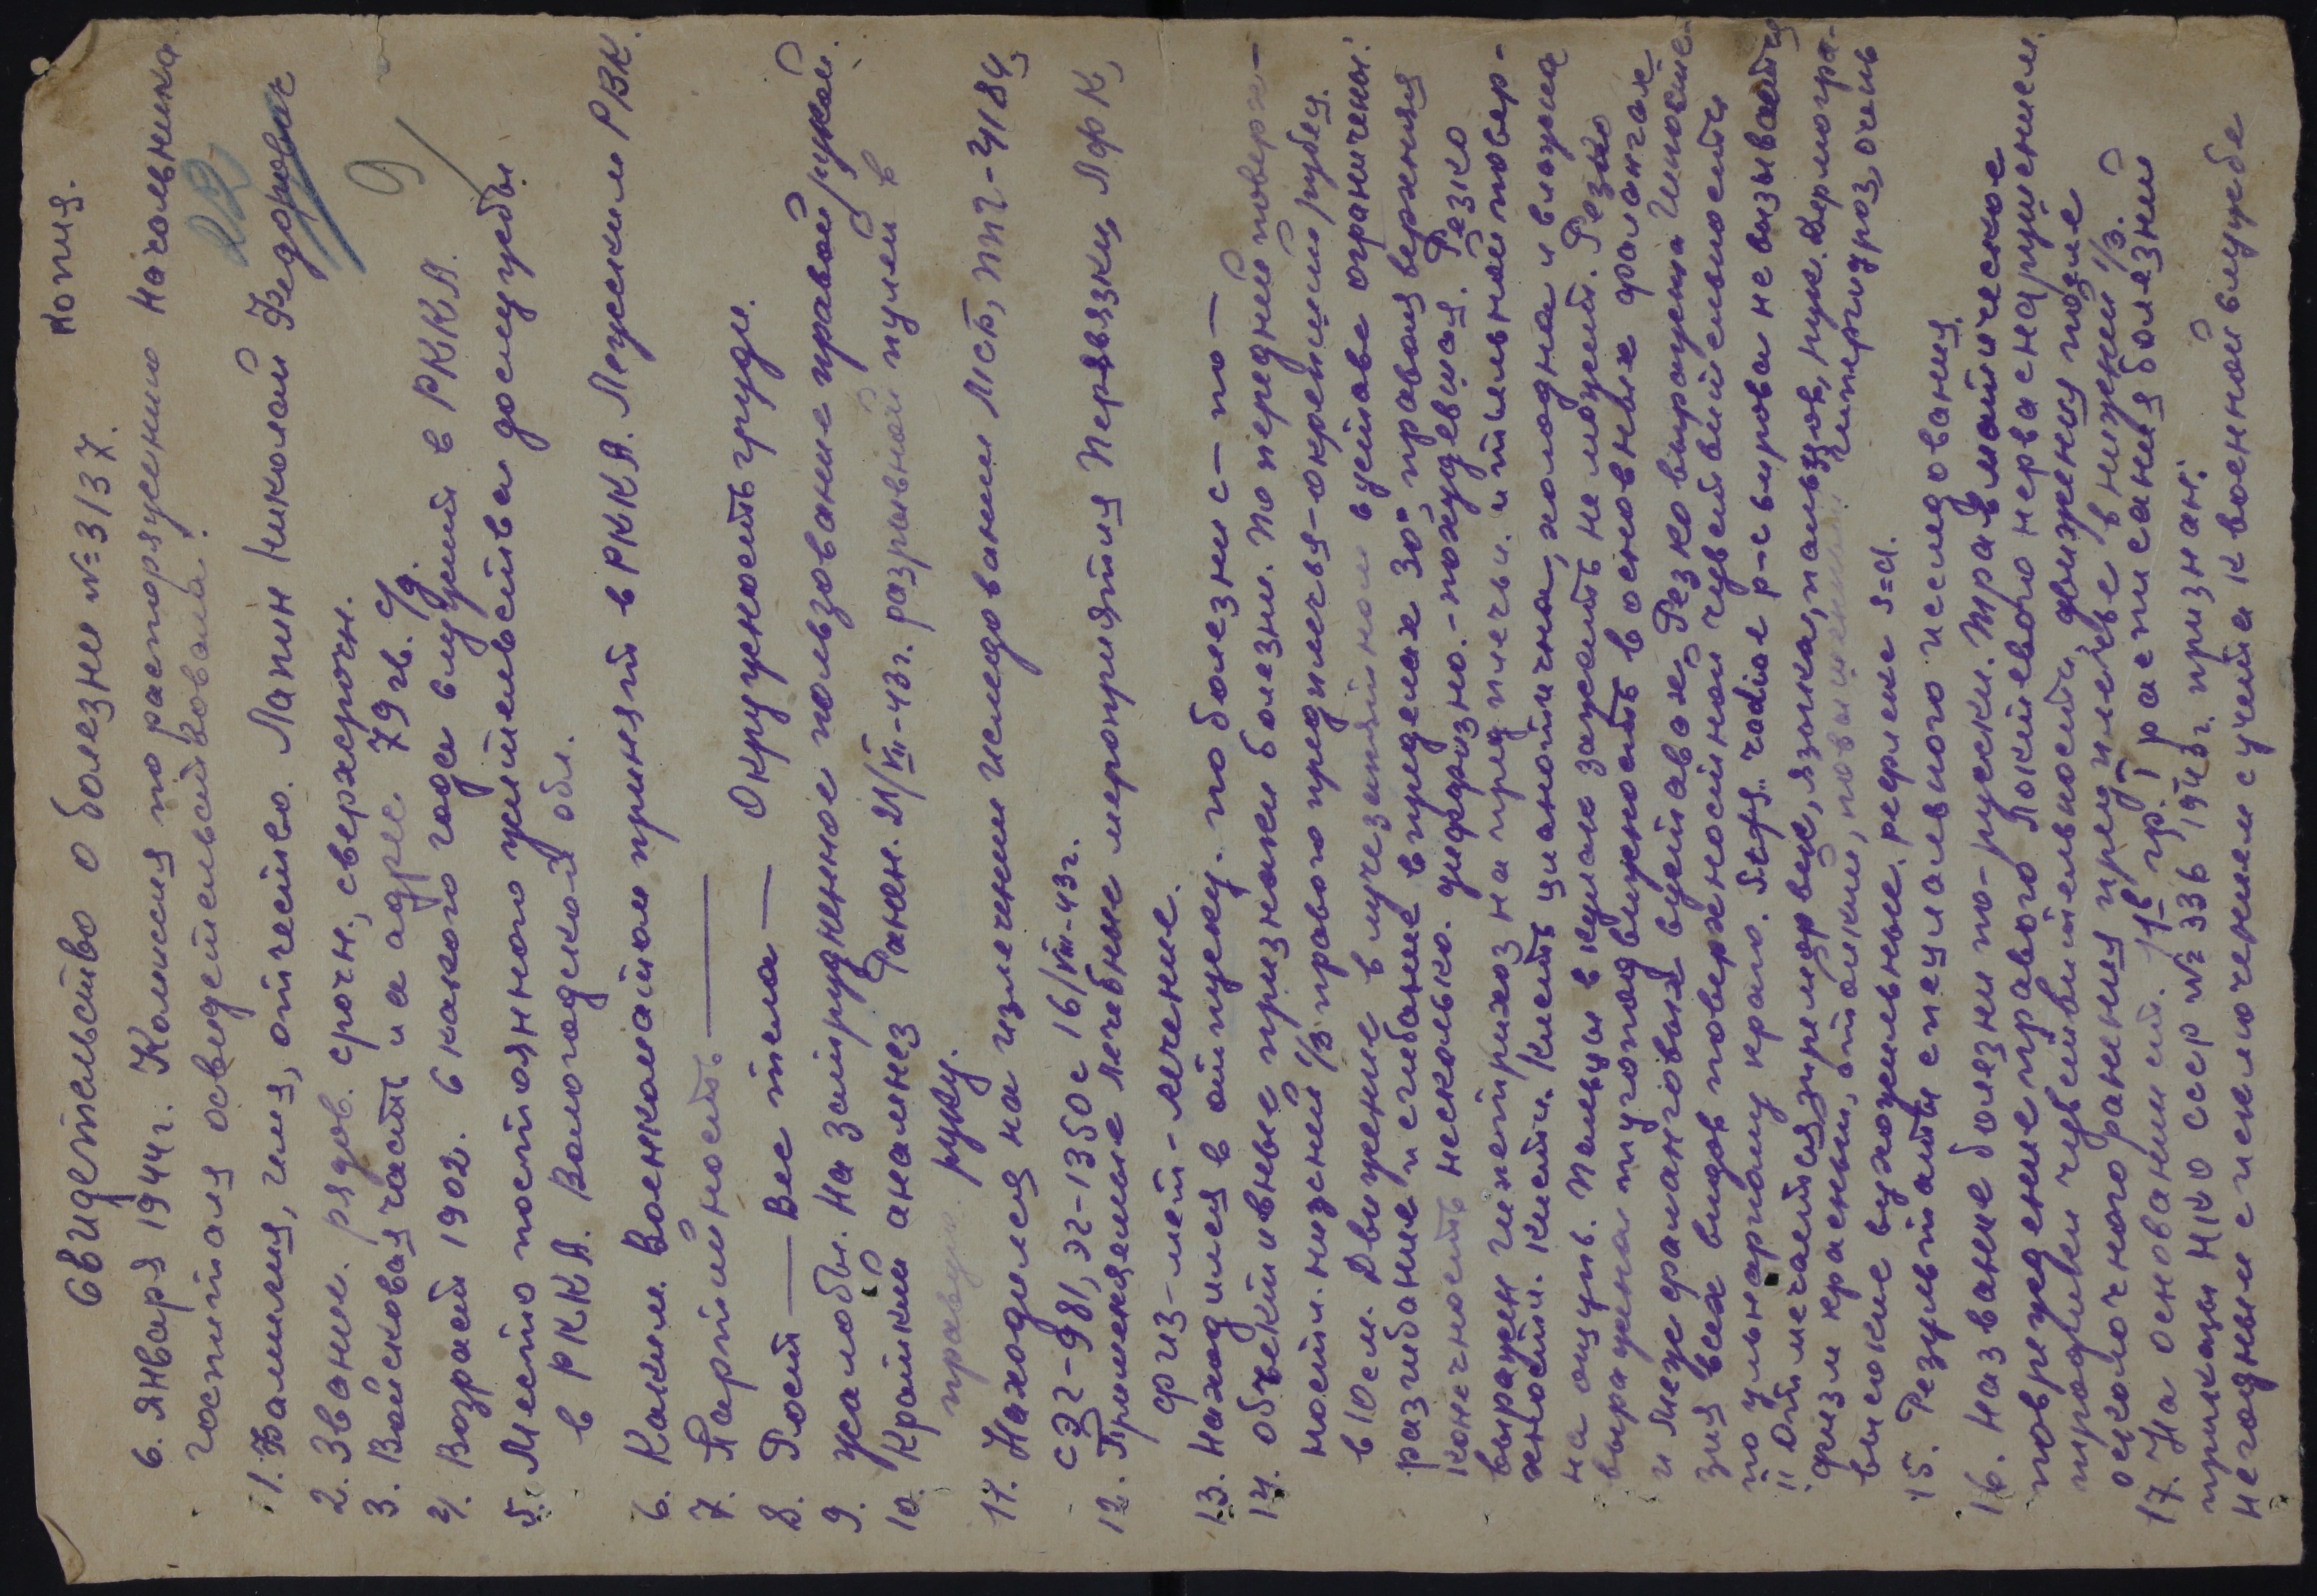 Копия.
Свидетельство о болезни № 3137.
6. Января 1944 г. Комиссия по распоряжению начальника
госпиталя освидетельствовала:
22
9
1. Фамилия, имя, отчество. Лапин Николай Федорович
2. Звание. рядов. срочн., сверхсрочн.
3. Войсковая часть и адрес 79 гв. с/д.
4. Возраст 1902. С какого года служит в РККА.
5. Место постоянного жительства до службы
в РККА. Вологодской обл.
6. Каким Военкоматом принят в РККА. РВК.
7. Партийность ———
8. Рост —— Вес тела — Окружность груди.
9. Жалобы. На затрудненное пользование правой рукой.
10. Краткий анамнез Ранен. 21/VII-43 г. разрывной пулей в
правую руку.
11. Находился на излечении исследовании Мсб, ППГ-4184,
СЭГ-981, ЭГ-1350 с 16/VIII-43 г.
12. Применяемые лечебные мероприятия Перевязки, ЛФК,
физ-мет-лечение.
13. Находился в отпуску. по болезни с — по —
14. Объективные признаки болезни. По передней поверх-
ности. нижней 1/3 правого предплечья - окрепший рубец.
в 10 см. Движение в лучезапястном суставе ограничены:
разгибание и сгибание в пределах 30°, правая верхняя
конечность несколько. диффузно. - похудевшая. Резко
выражен гипотрихоз на предплечьи. и тыльной повер-
хности. кисти. Кисть цианотична, холодна и влажна
на ощупь. Пальцы в кулак зажать не может. Резко
выражена тугоподвижность в основных фаланге
и межфаланговых суставах. Резко выражена Гипосте-
зия всех видов поверхностной чувствительности
по ульнарному краю. radiae р-с вирова не вызывается
"Отмечается тремор век, языка, пальцев, рук. Дермогра-
физм красный, стойкий, повышенный Гипергидроз, очень
высокие сухожильные рефлекс s=d.
15. Результаты специального исследования.
16. Название болезни по-русски. Травматическое
повреждение правого Локтевого нерва с нарушением.
проводки чувствительности, движения после
осколочного ранения предплечье в нижней 1/3.
17. На основании ст. гр. I расписания болезней
приказы НКО СССР № 336 1942 г. признан:
негодным с исключением с учета к военной службе